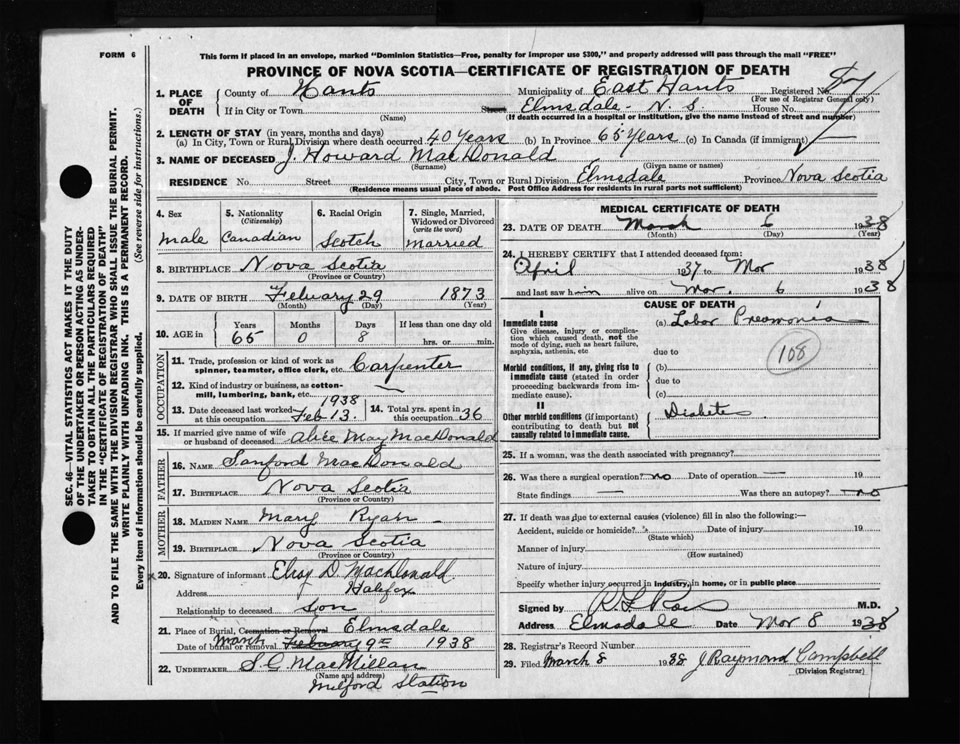 FORM 6
This form if placed in an envelope, marked "Dominion Statistics—Free, penalty for improper use $300," and properly addressed will pass through the mail "FREE"
PROVINCE OF NOVA SCOTIA—CERTIFICATE OF REGISTRATION OF DEATH
1. PLACE OF DEATH County of Hants Municipality of East Hants Registered No.
(For use of Registrar General only)
If in City or Town Street Elmsdale - N. S. House No.
(Name) (If death occurred in a hospital or institution, give the name instead of street and number)
2. LENGTH OF STAY (in years, months and days)
(a) In City, Town or Rural Division where death occurred 40 Years (b) In Province 65 Years (c) In Canada (if immigrant)
3. NAME OF DECEASED J. Howard MacDonald
(Surname) (Given name or names)
RESIDENCE No. Street City, Town or Rural Division Elmsdale Province Nova Scotia
(Residence means usual place of abode. Post Office Address for residents in rural parts not sufficient)
SEC. 46—VITAL STATISTICS ACT MAKES IT THE DUTY
OF THE UNDERTAKER OR PERSON ACTING AS UNDER-
TAKER TO OBTAIN ALL THE PARTICULARS REQUIRED
IN THE "CERTIFICATE OF REGISTRATION OF DEATH"
AND TO FILE THE SAME WITH THE DIVISION REGISTRAR WHO SHALL ISSUE THE BURIAL PERMIT.
WRITE PLAINLY WITH UNFADING INK. THIS IS A PERMANENT RECORD.
Every item of information should be carefully supplied. (See reverse side for instructions.)
4. Sex 5. Nationality (Citizenship) 6. Racial Origin 7. Single, Married, Widowed or Divorced (write the word)
male Canadian Scotch married
8. BIRTHPLACE Nova Scotia
(Province or Country)
9. DATE OF BIRTH Febuary 29 1873
(Month) (Day) (Year)
10. AGE in Years Months Days If less than one day old
65 0 8 hrs. or min.
OCCUPATION
11. Trade, profession or kind of work as spinner, teamster, office clerk, etc. Carpenter
12. Kind of industry or business, as cotton-mill, lumbering, bank, etc. —
13. Date deceased last worked at this occupation 1938 Feb 13. 14. Total yrs. spent in this occupation 36
15. If married give name of wife or husband of deceased Alice May MacDonald
FATHER
16. NAME Sanford MacDonald
17. BIRTHPLACE Nova Scotia
(Province or Country)
MOTHER
18. MAIDEN NAME Mary Ryan
19. BIRTHPLACE Nova Scotia
(Province or Country)
20. Signature of informant Elroy D. MacDonald
Address Halifax
Relationship to deceased Son
21. Place of Burial, Cremation or Removal Elmsdale
Date of burial or removal March February 9th 1938
22. UNDERTAKER S. C. MacMillan
(Name and address)
Milford Station
MEDICAL CERTIFICATE OF DEATH
23. DATE OF DEATH March 6 1938
(Month) (Day) (Year)
24. I HEREBY CERTIFY that I attended deceased from:
April 1937 to Mar 1938
and last saw him alive on Mar. 6 1938
CAUSE OF DEATH
I
Immediate cause (a) Lobar Pneumonia
Give disease, injury or complication which caused death, not the mode of dying, such as heart failure, asphyxia, asthenia, etc due to
108
Morbid conditions, if any, giving rise to immediate cause (stated in order proceeding backwards from immediate cause). (b)
due to
(c)
II
Other morbid conditions (if important) contributing to death but not causally related to immediate cause. Diabetes
25. If a woman, was the death associated with pregnancy?
26. Was there a surgical operation? no Date of operation — 19
State findings — Was there an autopsy? no
27. If death was due to external causes (violence) fill in also the following:—
Accident, suicide or homicide? Date of injury 19
(State which)
Manner of injury
(How sustained)
Nature of injury
Specify whether injury occurred in industry, in home, or in public place
Signed by M.D.
Address Elmsdale Date Mar 8 1938
28. Registrar's Record Number
29. Filed March 8 1938 J Raymond Campbell
(Division Registrar)